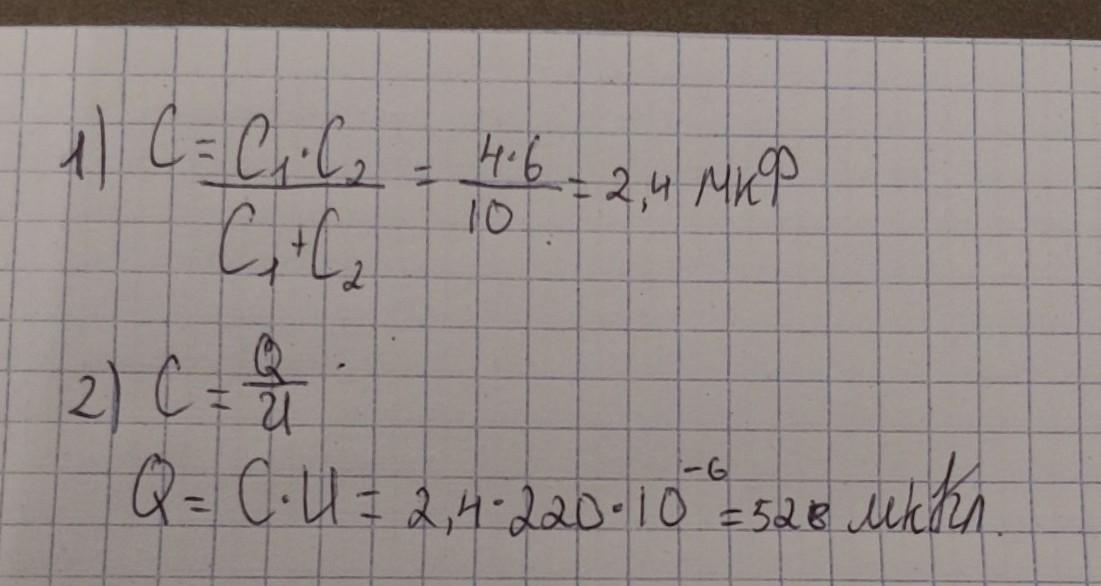 1) C = C₁·C₂ / C₁+C₂ = 4·6 / 10 = 2,4 мкФ
2) C = Q / U
Q = C·U = 2,4·220·10⁻⁶ = 528 мкКл.